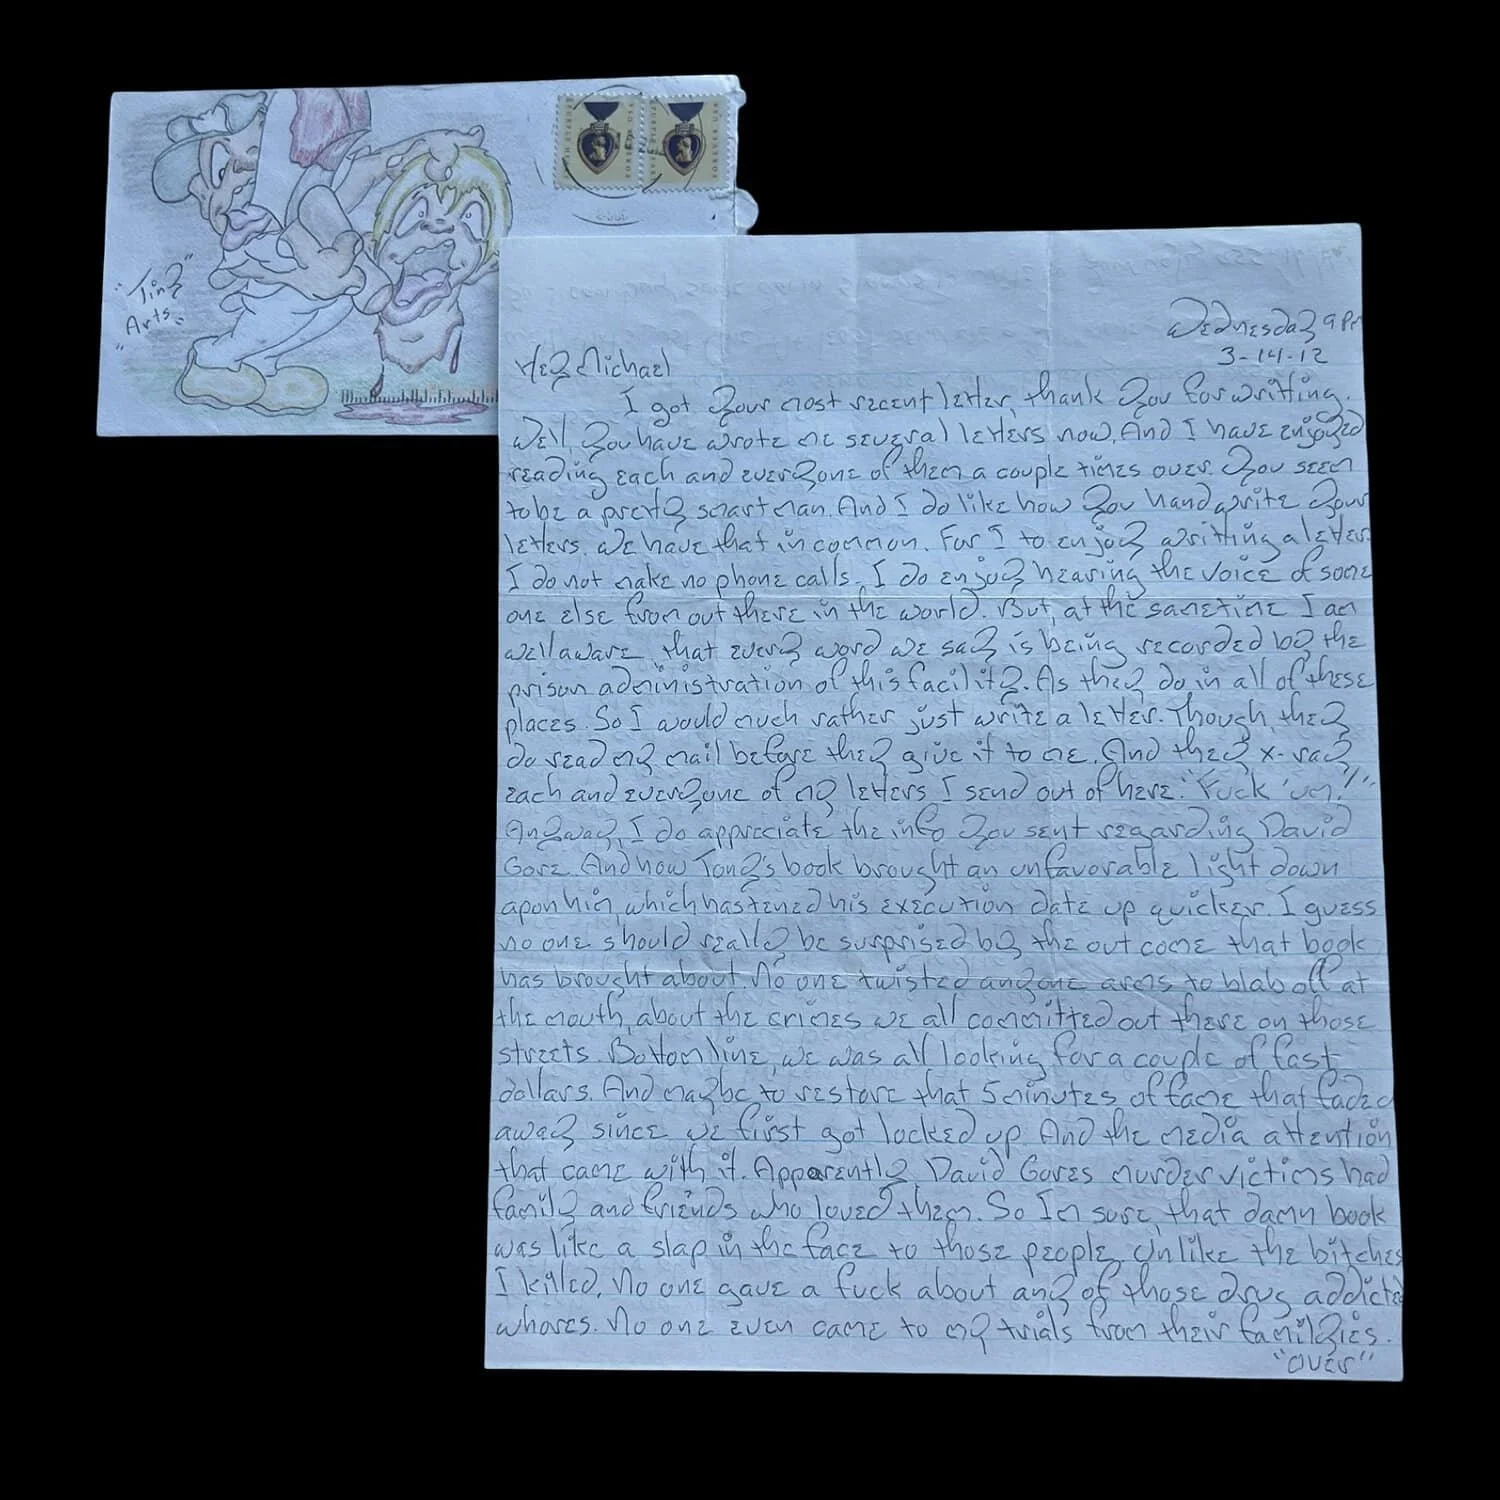 "Tiny
Arts"
PURPLE HEART
FOREVER USA
PURPLE HEART
FOREVER USA
Wednesday 9 Pm
3-14-12
Hey Michael
I got your most recent letter, thank you for writting.
Well, you have wrote me several letters now. And I have enjoyed
reading each and everyone of them a couple times over. You seem
to be a pretty smart man. And I do like how you hand write your
letters. We have that in common. For I to enjoy writting a letter.
I do not make no phone calls. I do enjoy hearing the voice of some
one else from out there in the world. But, at the sametime I am
well aware that every word we say is being recorded by the
prison administration of this facility. As they do in all of these
places. So I would much rather just write a letter. Though, they
do read my mail before they give it to me. And they x-ray
each and everyone of my letters I send out of here. "Fuck 'um!!"
Anyway, I do appreciate the info you sent regarding David
Gore. And how Tony's book brought an unfavorable light down
apon him, which hastened his execution date up quicker. I guess
no one should really be surprised by the out come that book
has brought about. No one twisted anyone arms to blab off at
the mouth, about the crimes we all committed out there on those
streets. Bottom line, we was all looking for a couple of fast
dollars. And maybe to restore that 5 minutes of fame that faded
away since we first got locked up. And the media attention
that came with it. Apparently David Gores murder victims had
family and friends who loved them. So Im sure, that damn book
was like a slap in the face to those people. Unlike the bitches
I killed. No one gave a fuck about any of those drug addicted
whores. No one even came to my trials from their familyies.
"over"